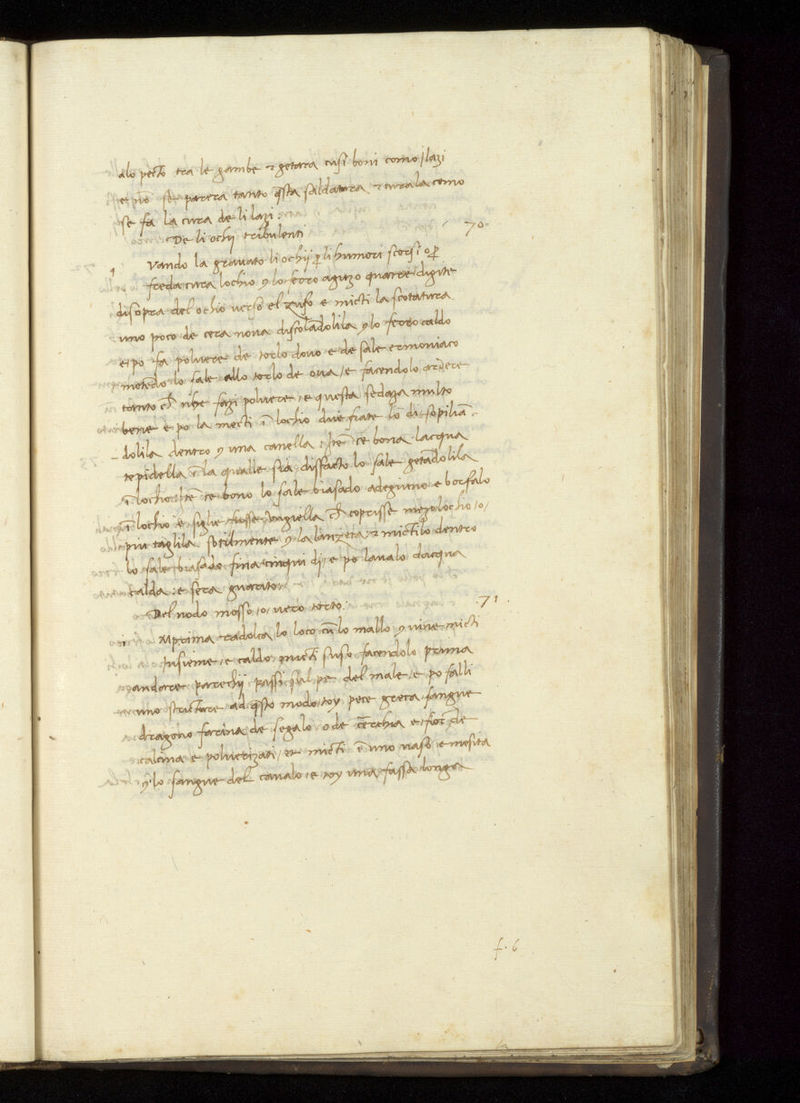 alo pecto tra le gambe & getara cusi boni como lazi
e no se parera tanto q̄sta saldatura & curala como
se fa la cura de li lazi
De li ochij tribulenti 70
q Vando la gravato li ochij p li humori scorsi o p
freda cura lochio y lo ferro aguzo quatre digite
disopra del ochio verso el zufo e micti la scotatura
uno poco de cera nova discoladolila y lo ferro caldo
e po fa polvere de torlo dovo e de sale ermoniaco
motedo lo sale allo torlo de ova e facendolo ardere
tanto ch nhe fazi polvere e questa sedaza multo
bene e po la mecti ī lochio due fiate lo di sopiliā
dolila dentro y una canella itē ce bona lacqua
tepidella ī la qualle sia disfacto lo sale getādolila
ī lochio itē ce bono lo sale biasado adegiuno e borsalo
ī lochio e siglie fusse ungiella ch coprisse mezo lochio o
piu taglila sotilmente y la lanzeta & mictilo dentro
lo sale biasado fina cinqui dj e po lavalo dacqua
calda e sera guarito
Del nodo mosso o vero torto 71
i Mprima radolca lo loco cū lo mallo y vine micti
insieme e caldo micti suso facendolo prima
andare parechij passi sal pe del male e po falli
uno strictore ad q̄sto modo toy pece greca sangue
dragono farina de segalo o de cerchia e fior de
calcina e polverizati et micti ī uno vaso e mesita
y lo sangue del cavalo e toy una fassa longa
f. 6